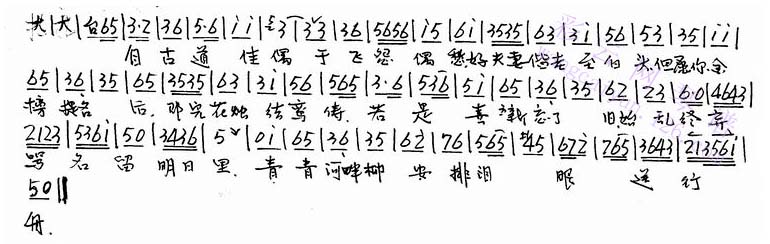 大|大|台65|3·2|36|5·6|i i|3 3 3|36|5656|i5|6i|3535|63|3i|56|53|35|i i|
自古道 佳偶于飞怨偶愁好夫妻偕老至白头但愿你金
65|36|35|65|3535|63|3i|56|565|3·6|536|5i|65|36|35|62|23|6·0|4643|
榜 题名 后, 那 花烛结鸾俦. 若是 喜新忘了 旧始乱终弃
2123|536i|50|3436|5|0i|65|36|35|62|76|565|45|672|765|3643|21356i|
骂名留明日里. 青青河畔柳 安排泪 眼 送行
50‖
舟.